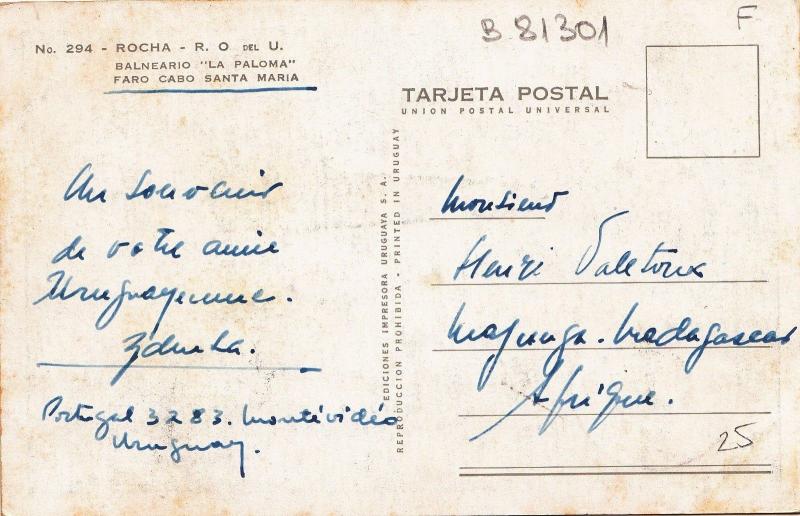 B 81301
F
No. 294 - ROCHA - R. O DEL U.
BALNEARIO "LA PALOMA"
FARO CABO SANTA MARIA
TARJETA POSTAL
UNION POSTAL UNIVERSAL
Un souvenir
de votre amie
Uruguayenne.
Portugal 3283. Montévidéo
Uruguay.
EDICIONES IMPRESORA URUGUAYA S. A.
REPRODUCCION PROHIBIDA - PRINTED IN URUGUAY
Monsieur
Henri
Majunga. Madagascar
Afrique.
25